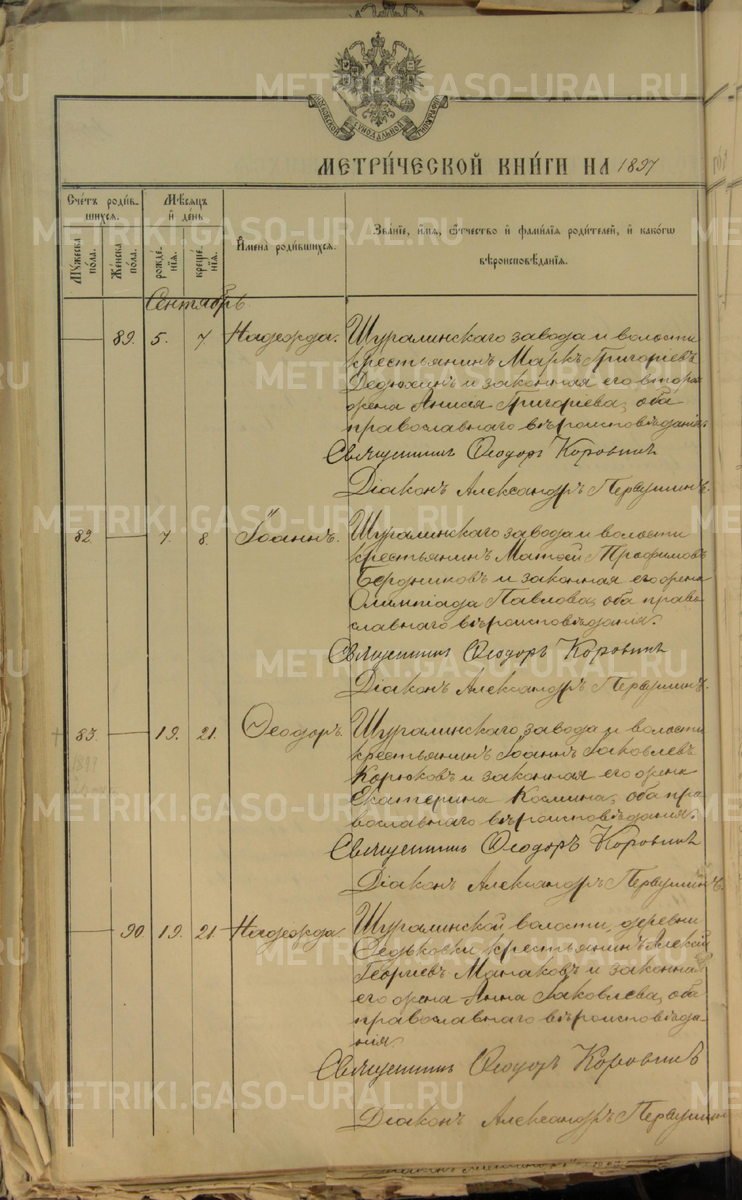 МОСКОВСКОЙ СѴНОДАЛЬНОЙ ТИПОГРАФІИ
METRIKI.GASO-URAL.RU
МЕТРИ́ЧЕСКОЙ КНИ́ГИ НА 1897
Счётъ роди́вшихся.
Му́жеска по́ла.
Же́нска по́ла.
Мѣ́сяцъ и҆ де́нь
рожде́нїѧ.
креще́нїѧ.
И҆мена̀ роди́вшихся.
Зва́нїе, и҆́мѧ, ѻ҆́тчество и҆ фами́лїѧ роди́телей, и҆ како́гѡ
вѣроисповѣ́данїѧ.
Сентябрь
89. 5. 7 Надежда. Шуралинскаго завода и волости
крестьянинъ Маркъ Григоріевъ
Дедюхинъ и законная его вторая
жена Анисія Григоріева, оба
православнаго вѣроисповѣданія.
Священникъ Ѳеодоръ Коровинъ
Діаконъ Александръ Первушинъ.
82. 7. 8. Іоаннъ. Шуралинскаго завода и волости
крестьянинъ Матѳей Трофимовъ
Бердниковъ и законная его жена
Олимпіада Павлова, оба право-
славнаго вѣроисповѣданія.
Священникъ Ѳеодоръ Коровинъ
Діаконъ Александръ Первушинъ.
83. 19. 21. Ѳеодоръ. Шуралинскаго завода и волости
крестьянинъ Іоаннъ Іаковлевъ
Корюковъ и законная его жена
Екатерина Космина, оба пра-
вославнаго вѣроисповѣданія.
Священникъ Ѳеодоръ Коровинъ
Діаконъ Александръ Первушинъ.
90 19. 21. Надежда. Шуралинской волости, деревни
Ѳедьковки, крестьянинъ Алексій
Георгіевъ Манаковъ и законная
его жена Анна Іаковлева, оба
православнаго вѣроисповѣда-
нія.
Священникъ Ѳеодоръ Коровинъ
Діаконъ Александръ Первушинъ